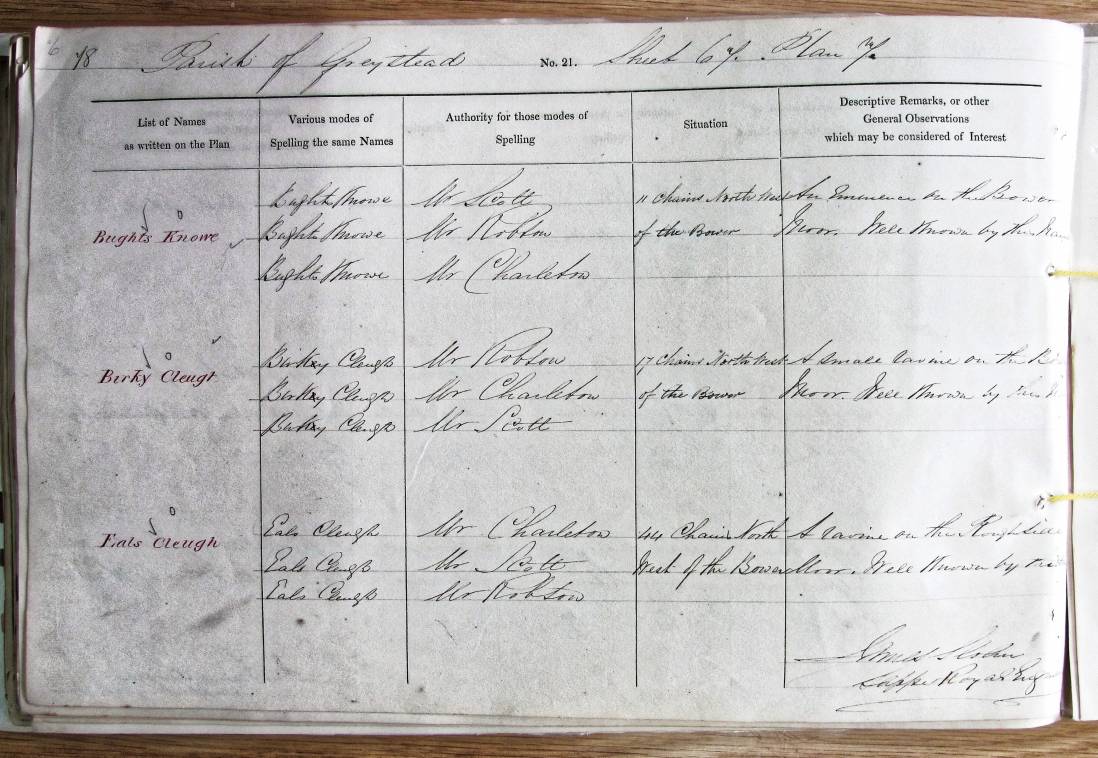 78 Parish of Greystead No. 21. Sheet 67. Plan
List of Names
as written on the Plan
Various modes of
Spelling the same Names
Authority for those modes of
Spelling
Situation
Descriptive Remarks, or other
General Observations
which may be considered of Interest
Bughts Knowe Mr Scott 11 Chains North West An Eminence on the Bower
Bughts Knowe Bughts Knowe Mr Robson of the Bower Moor. Well Known by this
Bughts Knowe Mr Charleton
Birky Cleugh Mr Robson 17 Chains North West A small ravine on the
Birky Cleugh Birky Cleugh Mr Charleton of the Bower Moor. Well Known by this
Birky Cleugh Mr Scott
Eals Cleugh Mr Charleton 44 Chains North A ravine on the Roughside
Eals Cleugh Eals Cleugh Mr Scott West of the Bower Moor. Well Known by
Eals Cleugh Mr Robson
James
Sapper Royal Eng